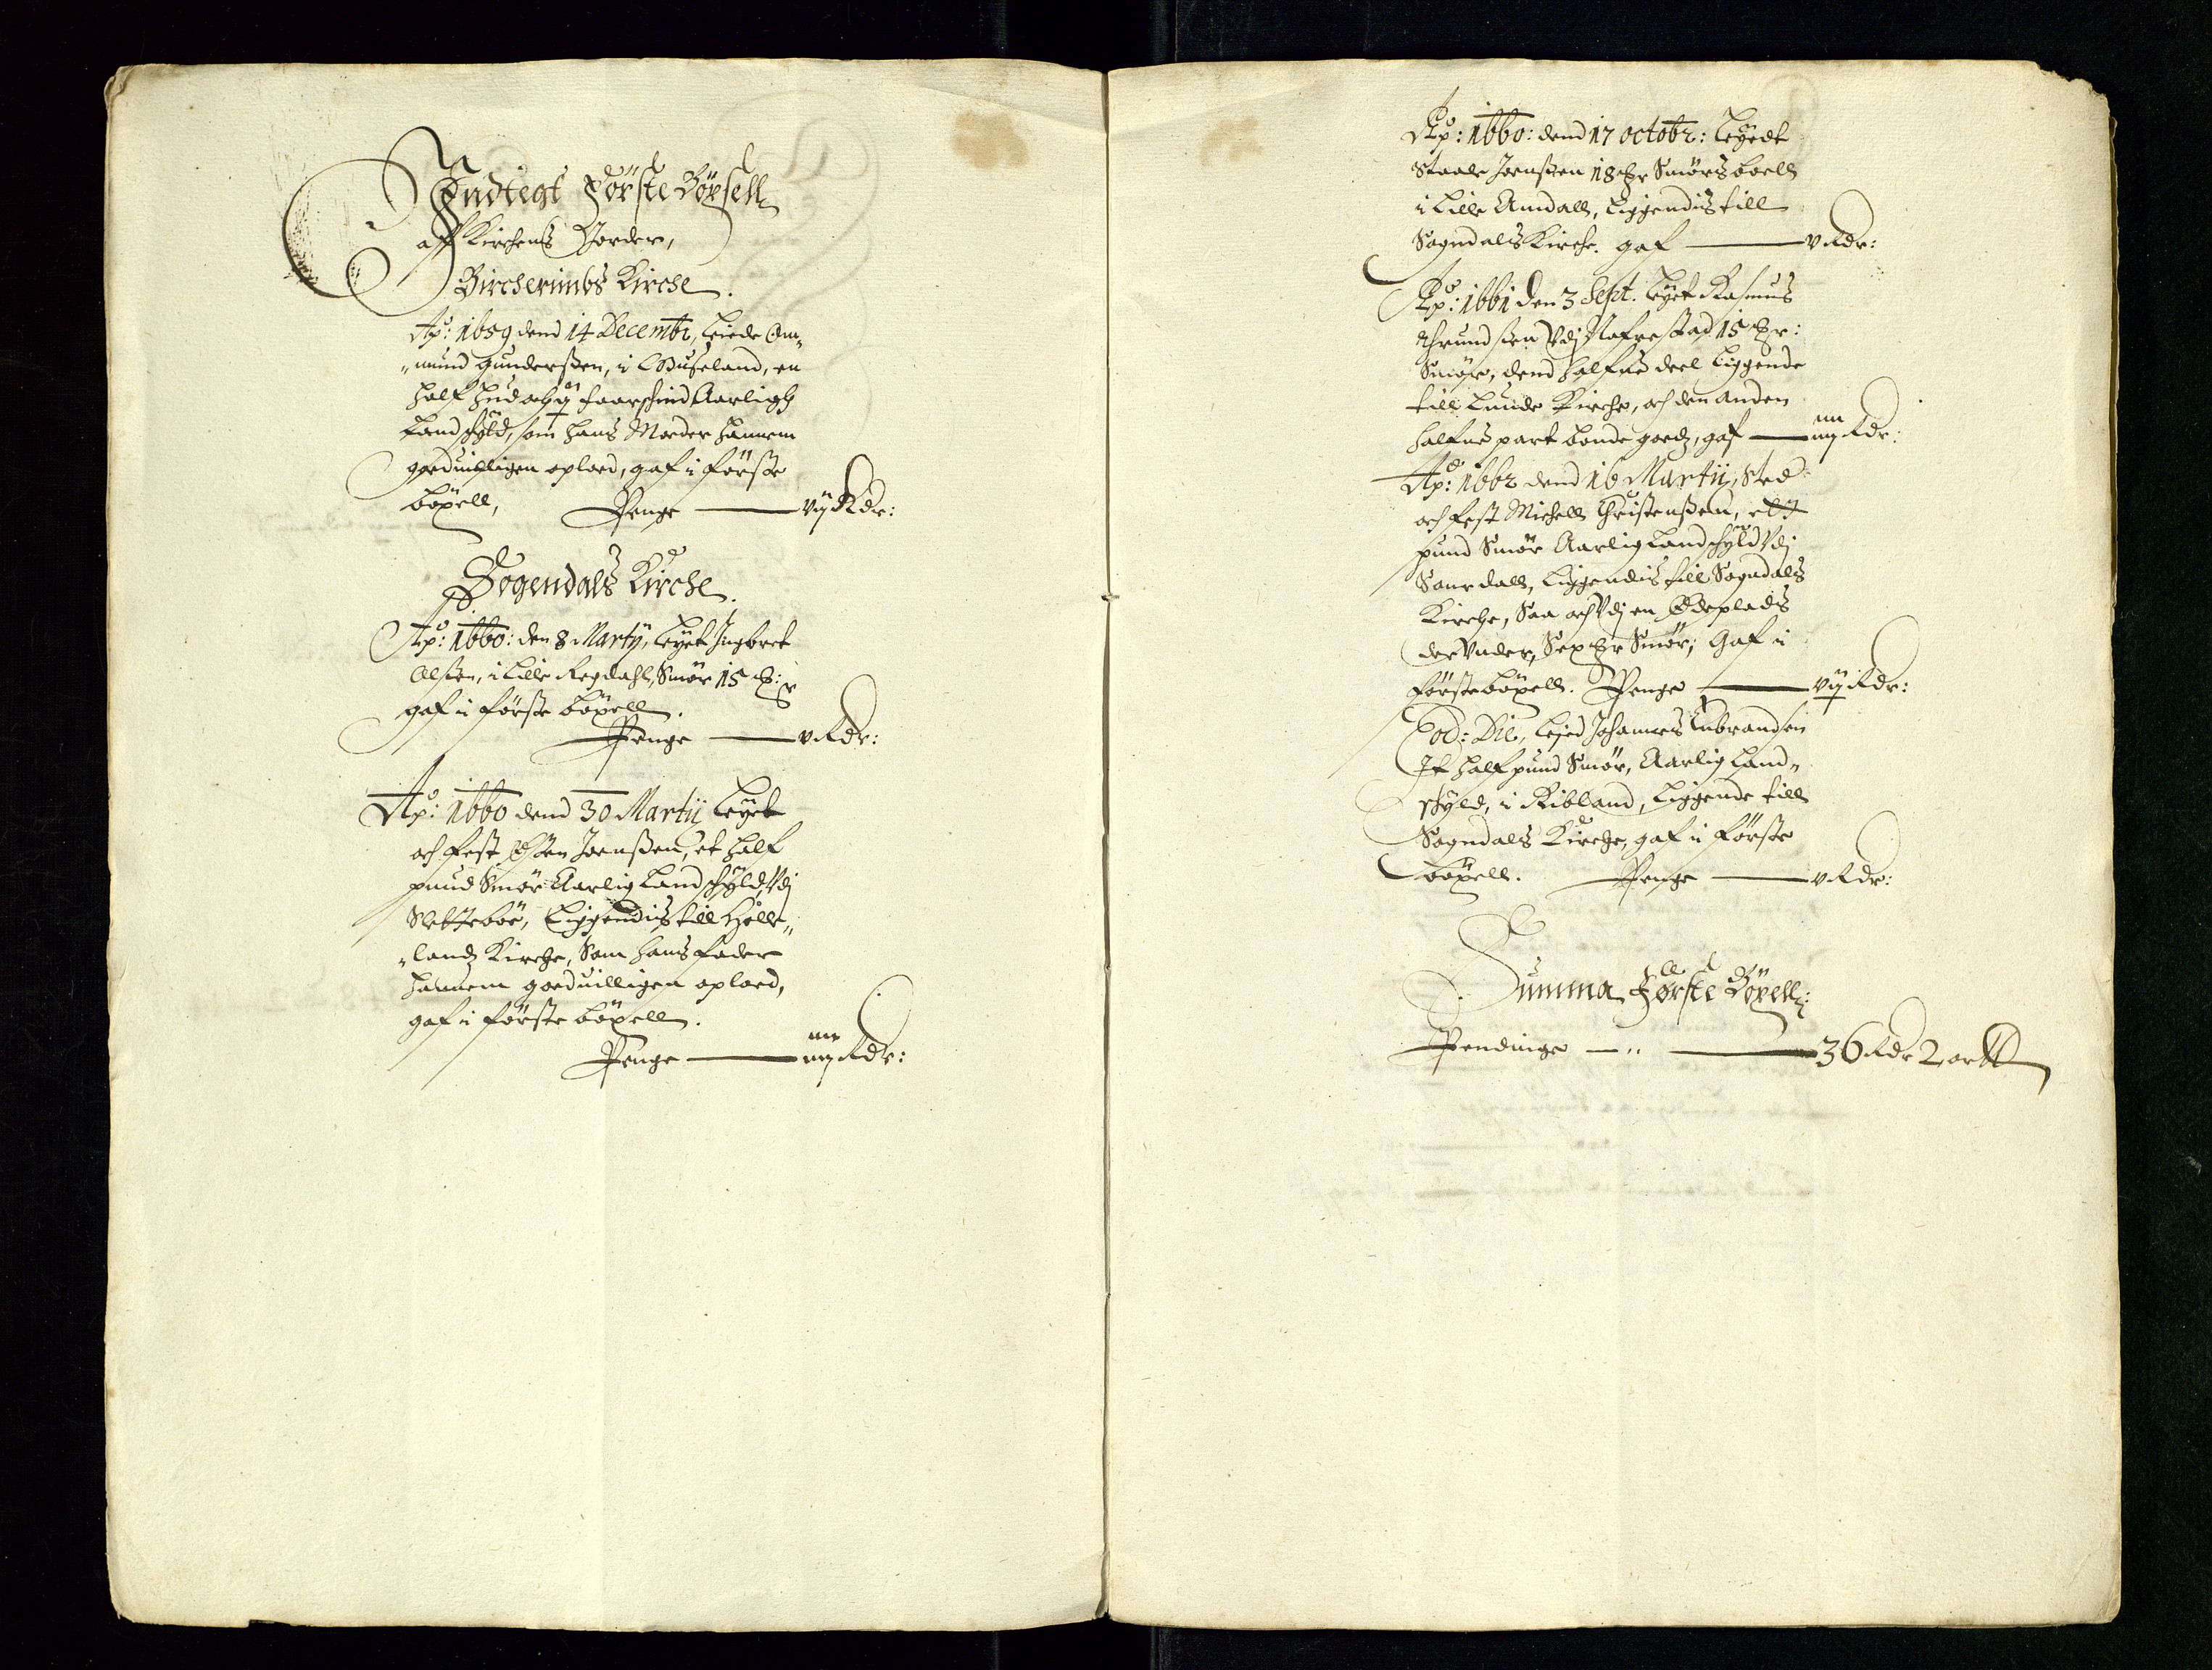 Indtegt Förste Böxsell
aff Kirchens Jorder,
Bircherimbs Kirche.
Ao: 1659 dend 14 Decembr, Leiede Om„
„mund Gunderßen, i Museland, en
half Hud och ij faarschind Aarligh
Landschyld, som hans Moeder hannem
goeduilligen oploed, gaf i förste
böxell, Penge — vij Rdr:
Sogendals Kirche.
Ao: 1660: den 8 Martij, Leyet Ingbret
Olßen, i Lille Regdahl, Smör 15 mrk:
gaf i förste böxell.
Penge — v Rdr:
Ao: 1660 dend 30 Martij Leyet
och fest Joenßen, et half
pund Smör Aarlig Landschyld, Vdj
Slettebøe, Liggendis till Helle„
„landz Kirche, Som hans fader
hannem goeduilligen oploed,
gaf i förste böxell.
Penge — Rdr:
Ao: 1660: dend 17 octobr: Leyedt
Staale Joenßen 18 mrk Smörs boell
i Lille Amdall, Liggendis till
Sogndals Kirche. gaf — v Rdr:
Ao: 1661 den 3 Sept. Leyet Rasmus
Thrundßen Vdj Nafrestad 15 mrk:
Smör, dend halfue deel Liggende
till Lunde Kirche, och den anden
halfue part bonde goedz, gaf — Rdr:
Ao: 1662 dend 16 Martij, Sted
och fest Michell Christenßenn, ett
pund Smör Aarlig Landschyld Vdj
Saurdall, Liggendis till Sogndals
Kirche, Saa och Vdj en Ødeplads
der Vnder, Sex mrk Smör, Gaf i
förste böxell. Penge — vij Rdr:
Eod: Die, Leyed Johannes Enbrandsen
It half pund Smör, Aarlig Land„
schyld, i Ribland, Liggende till
Sogndals Kirche, gaf i förste
böxell. Penge — v Rdr:
Summa Förste Böxell:
Pendinge — 36 Rdr 2 ortt